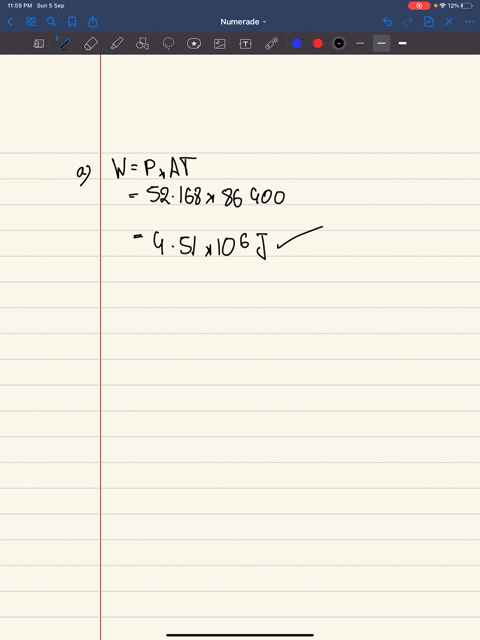 11:59 PM Sun 5 Sep
12%
Numerade
a) W = P × ΔT
= 52.168 × 86 400
= 4.51 × 10⁶ J ✓